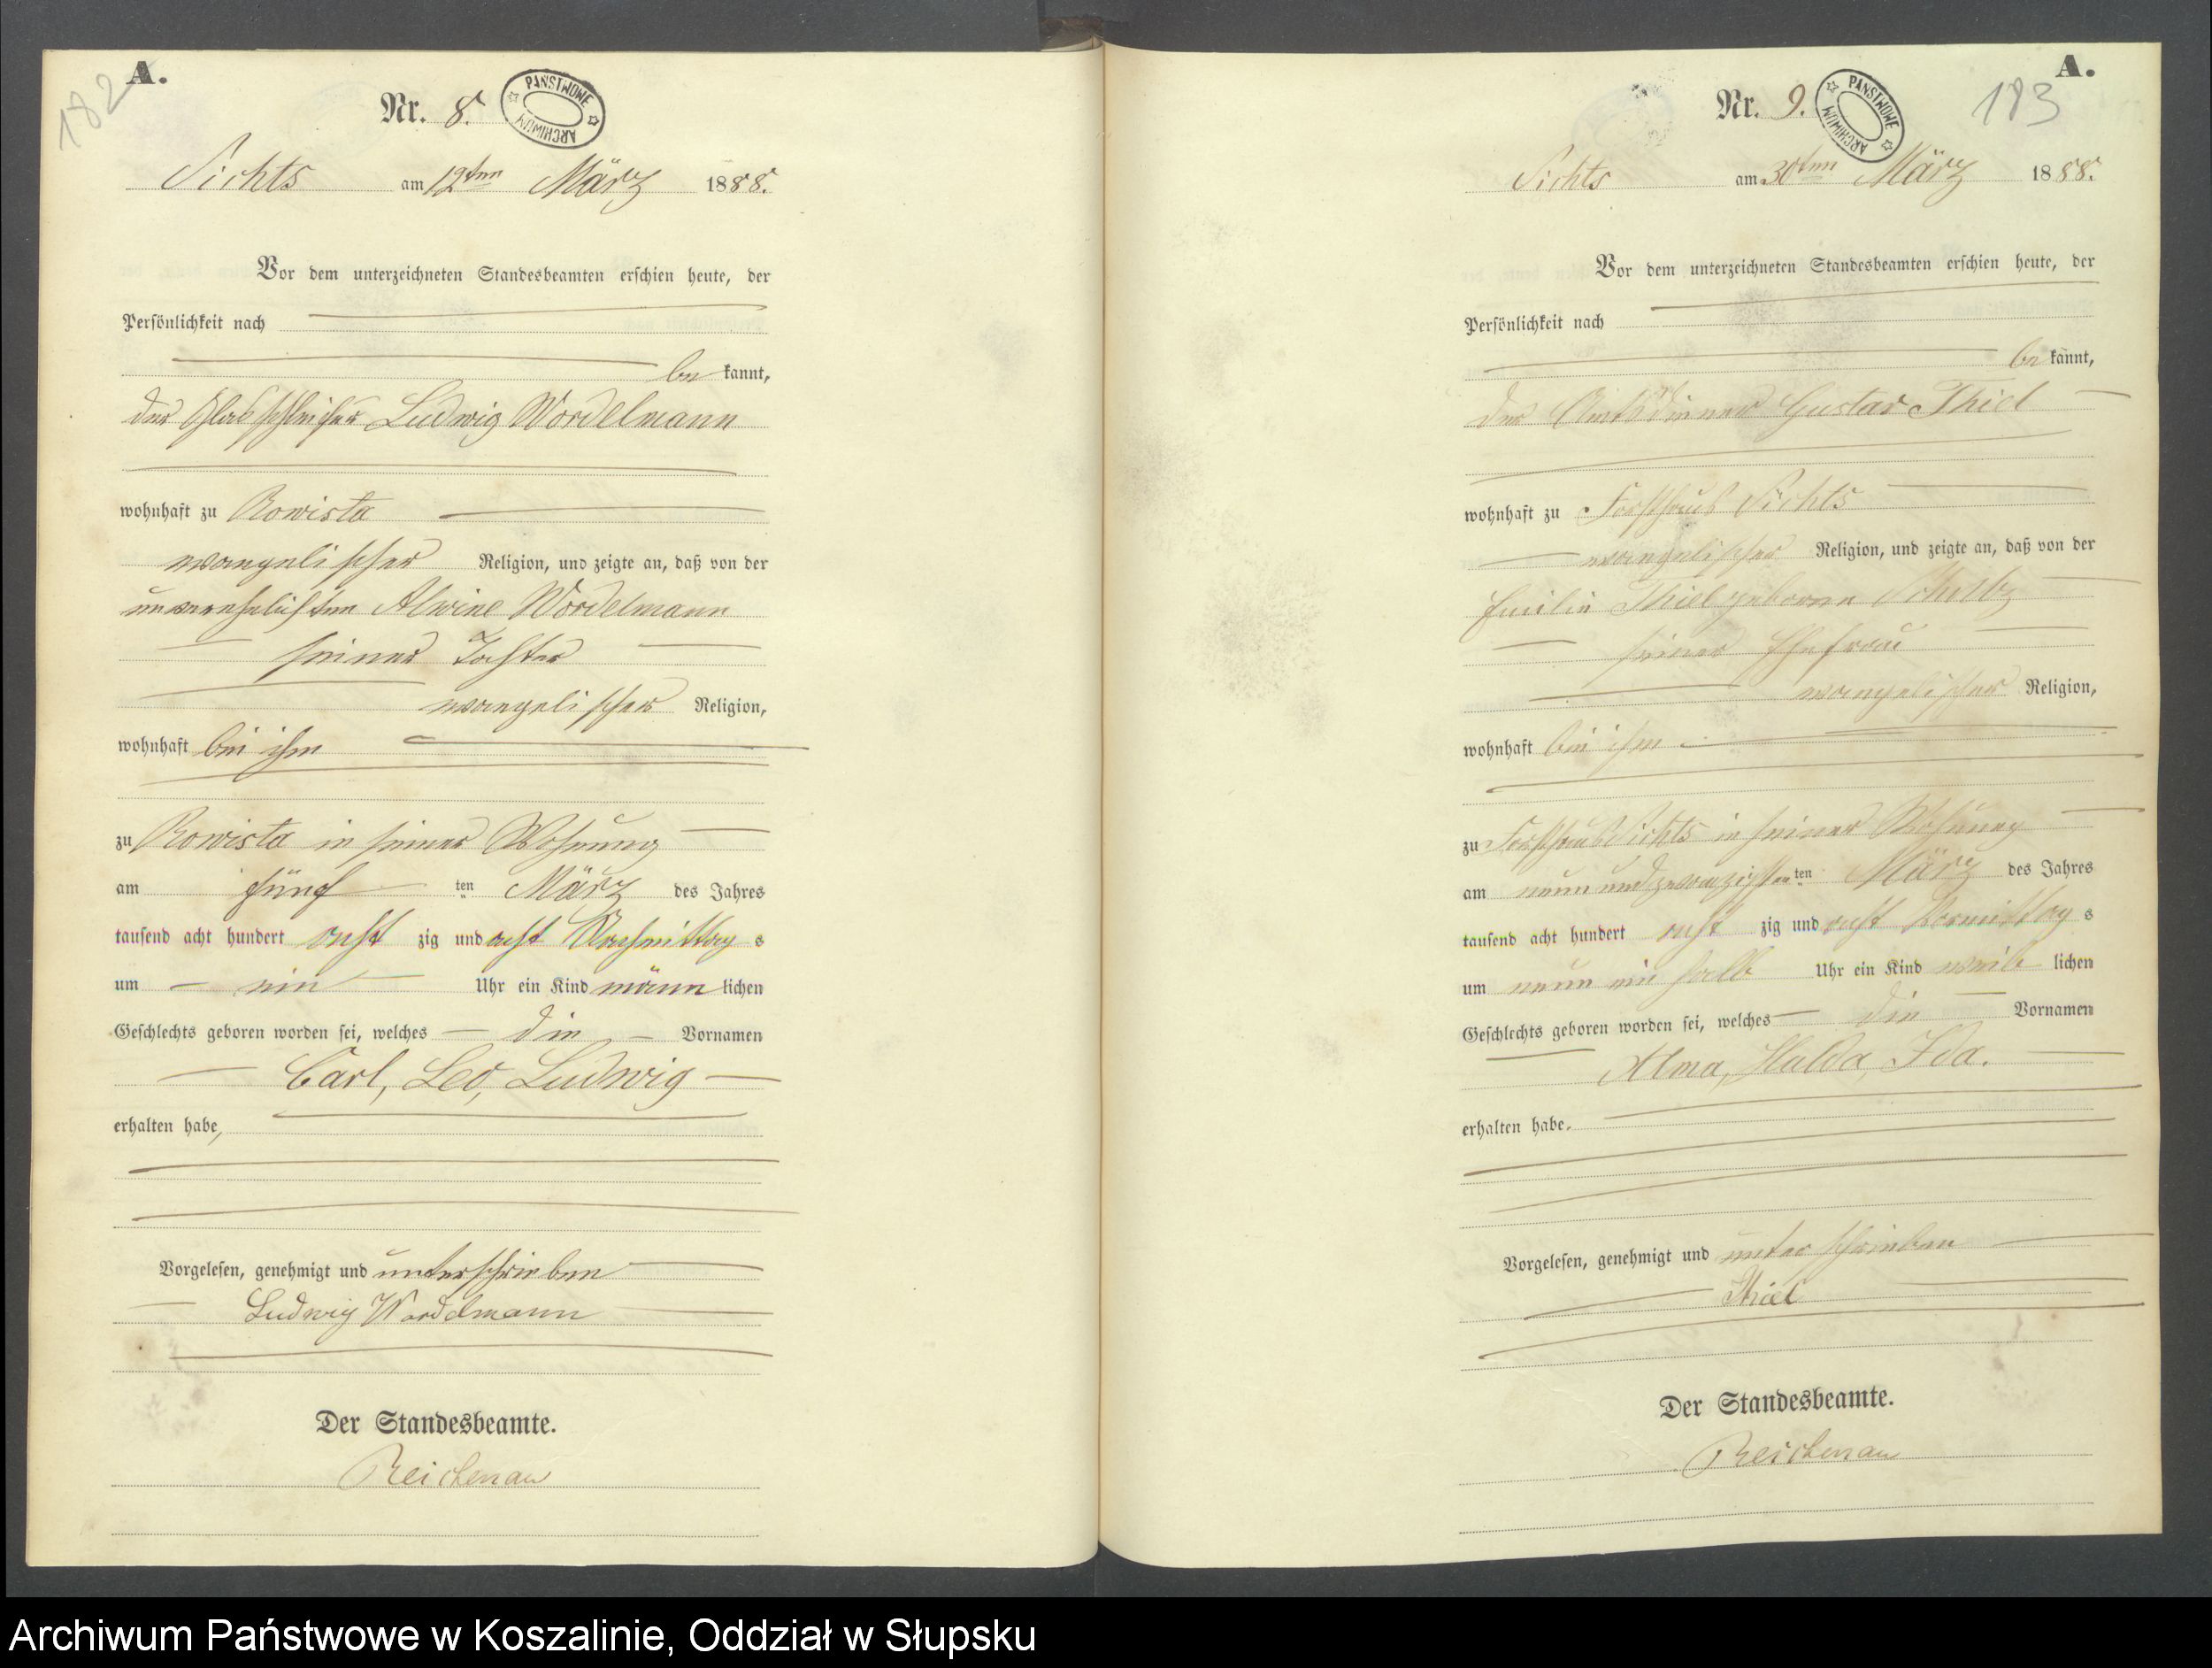 182
A.
Nr. 8.
PAŃSTWOWE ARCHIWUM
Sichts am 12ten März 1888.
Vor dem unterzeichneten Standesbeamten erschien heute, der
Persönlichkeit nach
be kannt,
der Glasschleifer Ludwig Wordelmann
wohnhaft zu Rowista
evangelischer Religion, und zeigte an, daß von der
unverehelichten Alwine Wordelmann
seiner Tochter
evangelischer Religion,
wohnhaft bei ihm
zu Rowista in seiner Wohnung
am fünf ten März des Jahres
tausend acht hundert acht zig und acht Nachmittag s
um ein Uhr ein Kind männ lichen
Geschlechts geboren worden sei, welches die Vornamen
Carl, Leo, Ludwig
erhalten habe,
Vorgelesen, genehmigt und unterschrieben
Ludwig Wordelmann
Der Standesbeamte.
Reichenau
A.
183
Nr. 9.
PAŃSTWOWE ARCHIWUM
Sichts am 30ten März 1888.
Vor dem unterzeichneten Standesbeamten erschien heute, der
Persönlichkeit nach
be kannt,
der Amtsdiener Gustav Thiel
wohnhaft zu Forsthaus Sichts
evangelischer Religion, und zeigte an, daß von der
Emilie Thiel geborene
seiner Ehefrau
evangelischer Religion,
wohnhaft bei ihm
zu Forsthaus Sichts in seiner Wohnung
am neun und zwanzigsten ten März des Jahres
tausend acht hundert acht zig und acht Vormittag s
um neun ein halb Uhr ein Kind weib lichen
Geschlechts geboren worden sei, welches die Vornamen
Alma, Hulda, Ida.
erhalten habe.
Vorgelesen, genehmigt und unterschrieben
Thiel
Der Standesbeamte.
Reichenau
Archiwum Państwowe w Koszalinie, Oddział w Słupsku